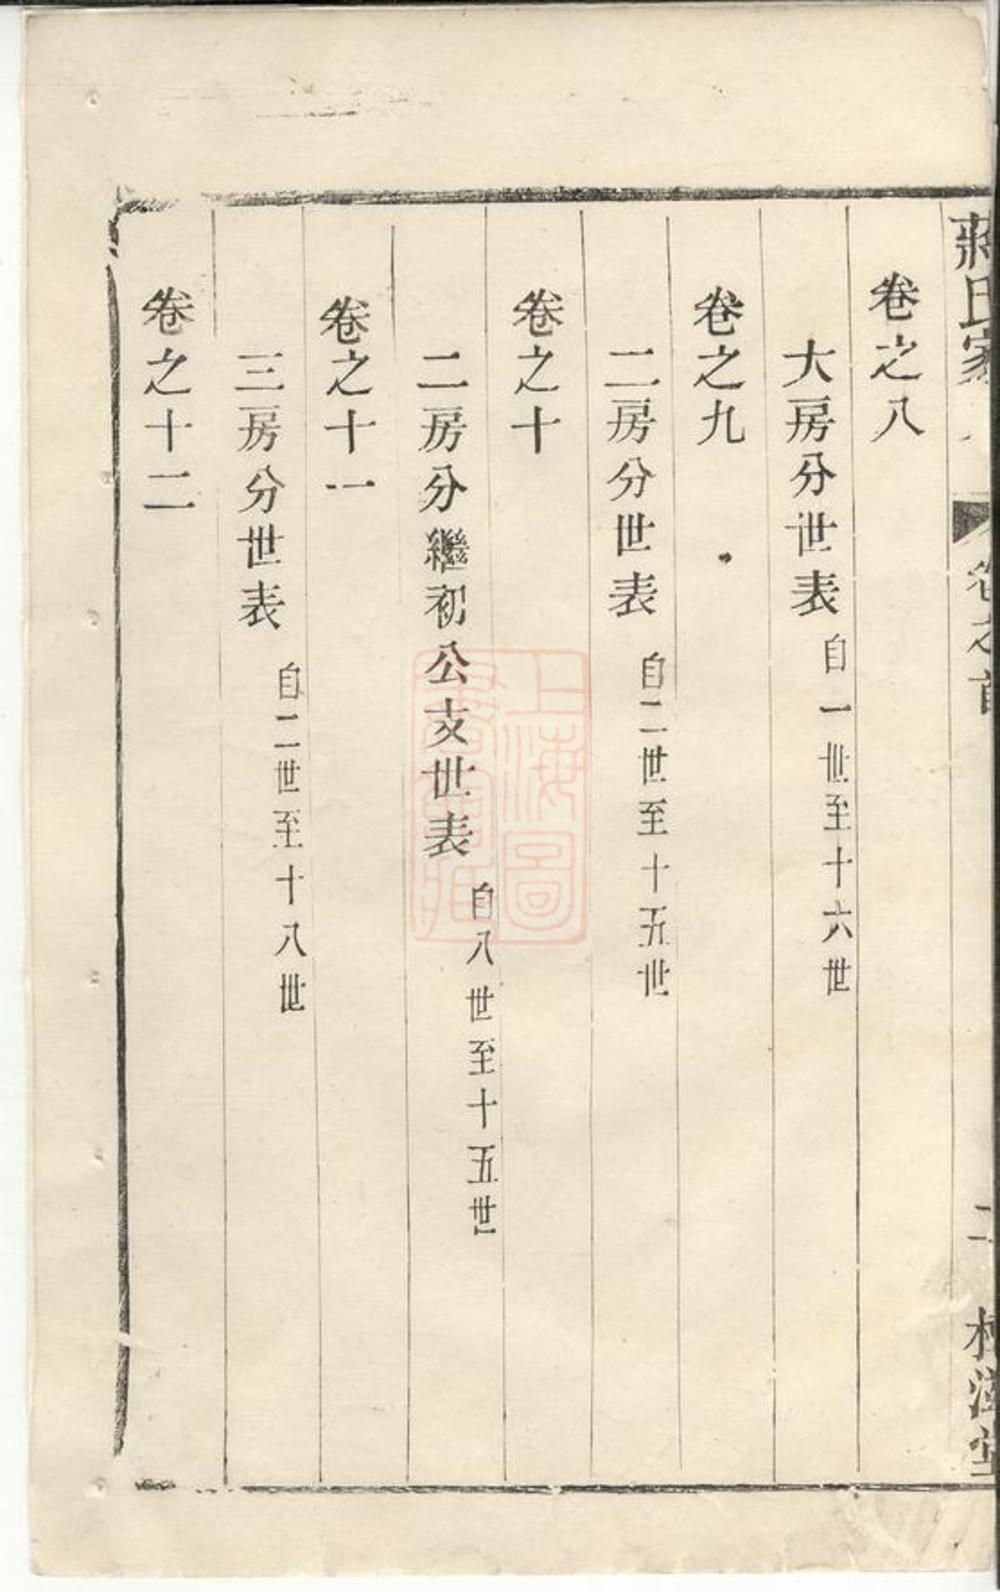 蔣氏家
卷之首
二
卷之八
大房分世表 自一世至十六世
卷之九
二房分世表 自二世至十五世
卷之十
二房分繼初公支世表 自八世至十五世
卷之十一
三房分世表 自二世至十八世
卷之十二
上海圖
書館藏